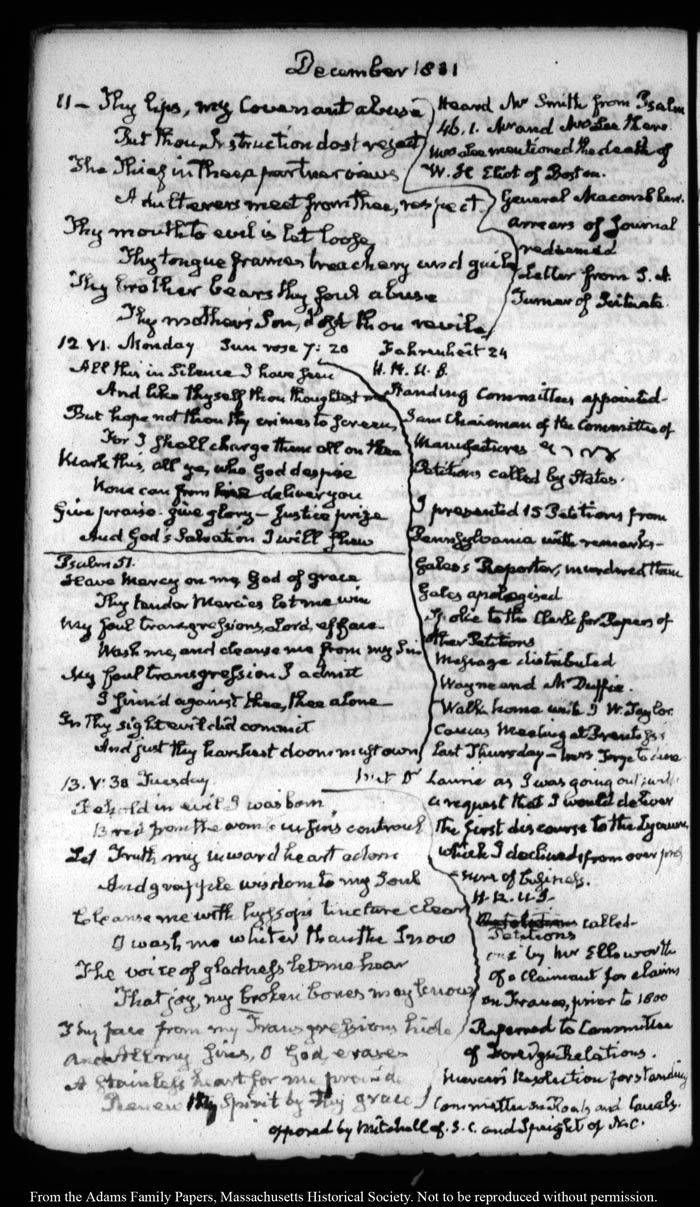 December 1831
11 - Thy lips, my Covenant abuse
But thou, Instruction dost reject
The Thief in thee a partner views
Adulterers meet from thee, respect
Thy mouth to evil is let loose,
Thy tongue frames treachery and guile
Thy brother bears thy foul abuse
Thy mother's Son, dost thou revile,
Heard Mr Smith from Psalm
46. 1. Mr and Mrs Lee there
Mrs Lee mentioned the death of
W. H. Eliot of Boston.
General Macomb here.
arrears of Journal
redeemed
Letter from S. A.
Turner of Scituate.
12 VI. Monday Sun rose 7: 20 Fahrenheit 24
All this in Silence I have seen
And like thyself thou thoughtest me
But hope not thou thy crimes to screen
For I shall charge them all on thee
Mark this, all ye, who God despise
None can from deliver you
Give praise - give glory - Justice prize
And God's Salvation I will shew
H. R. U. S.
Standing Committees appointed -
I am Chairman of the Committee of
Manufactures
Petitions called by States.
I presented 15 Petitions from
Pennsylvania with remarks -
Gales's Reporter, murdered them
Gales apologised
Spoke to the Clerk for Papers of
other Petitions
Message distributed
Wayne and McDuffie.
Walk home with J W. Taylor.
Caucus Meeting at
last Thursday - Mrs Frye to dine
Psalm 51.
Have Mercy on me, God of grace
Thy tender Mercies let me win
My foul transgressions, Lord, efface
Wash me, and cleanse me from my Sin
My foul transgression I admit
I sinn'd against thee, thee alone
In Thy sight evil did commit
And just thy harshest doom must own
13. V: 30 Tuesday.
Behold in evil I was born,
Bred from the womb in sin's controul
Let Truth, my inward heart adorn
And grapple wisdom to my Soul
Cleanse me with hyssop's tincture clear
O wash me whiter than the Snow
The voice of gladness let me hear
That joy, my broken bones may know
Thy face from my Transgressions hide
And All my sins, O God erase
A Stainless heart for me provide
Renew thy Spirit by Thy grace
Met Dr Laurie as I was going out; with
a request that I would deliver
the first discourse to the Lyceum,
which I declined, from over pres-
sure of business.
H. R. U. S.
Resolutions called -
Petitions
one by Mr Ellsworth
of a Claimant for claims
on France, prior to 1800
Referred to Committee
of Foreign Relations.
Mercer's Resolution for standing
Committee on Roads and Canals.
opposed by Mitchell of S. C. and Speight of N. C.
From the Adams Family Papers, Massachusetts Historical Society. Not to be reproduced without permission.